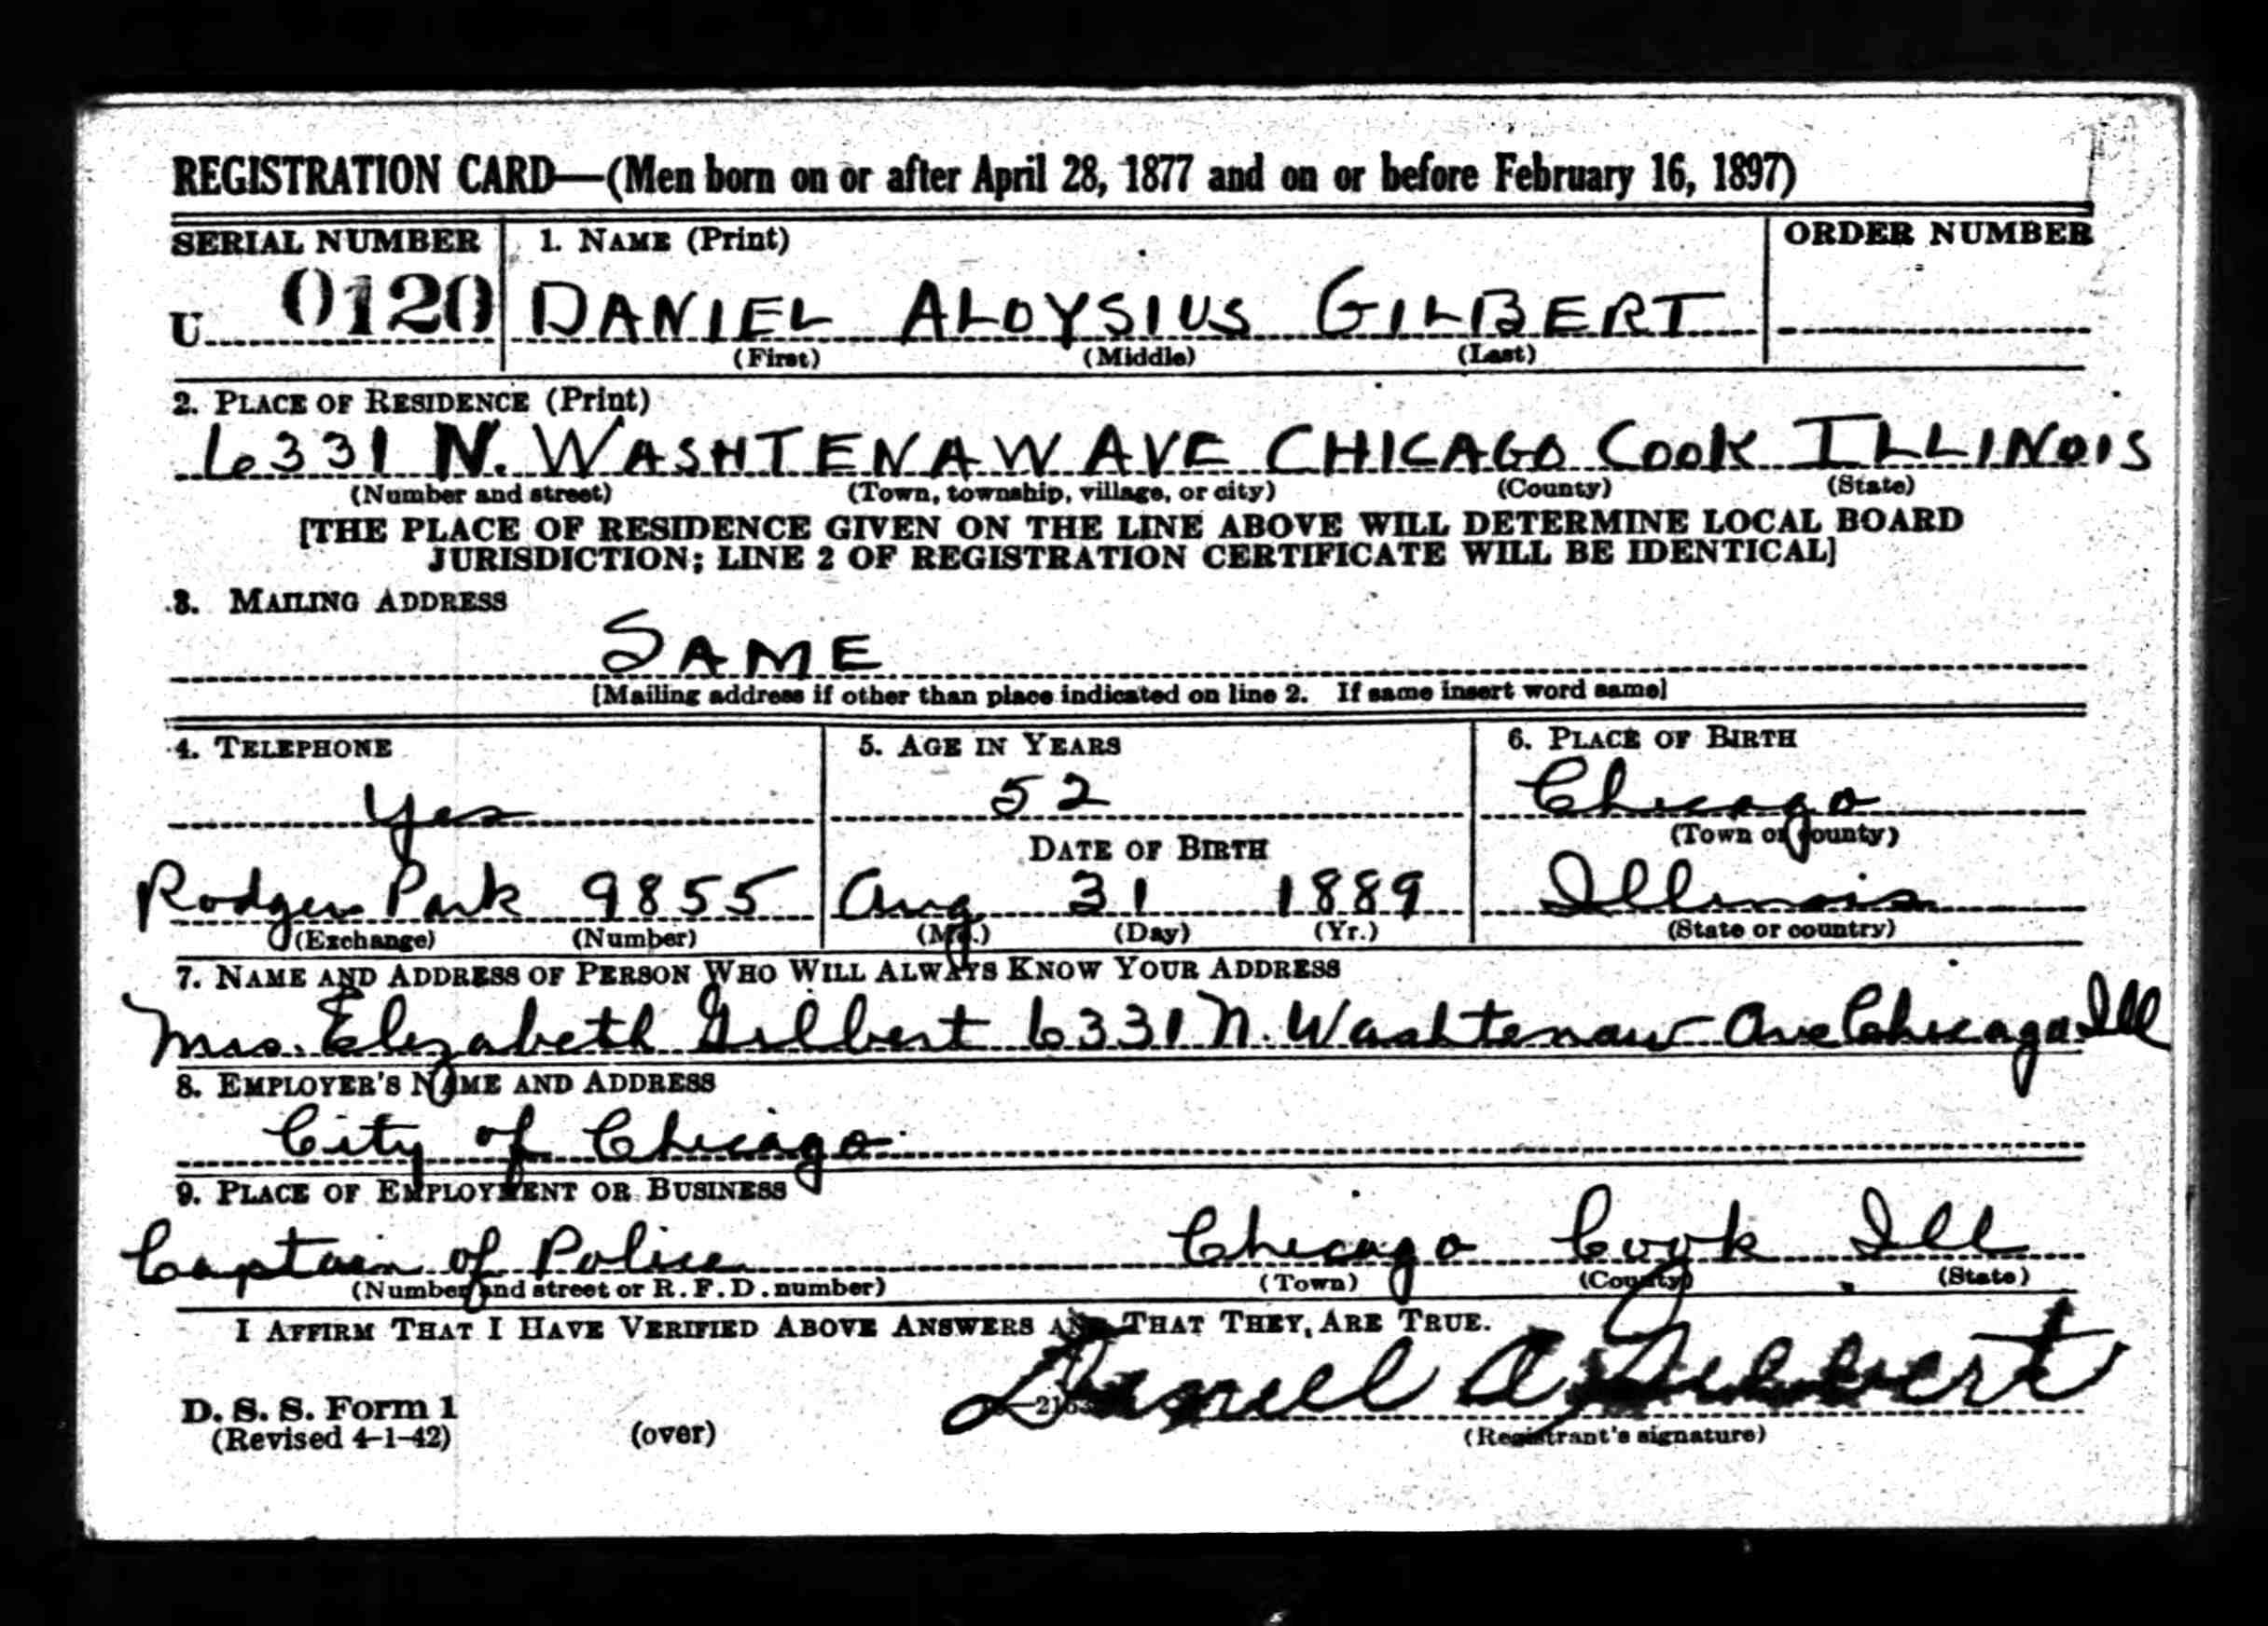 REGISTRATION CARD—(Men born on or after April 28, 1877 and on or before February 16, 1897)
SERIAL NUMBER 1. NAME (Print) ORDER NUMBER
U 0120 DANIEL ALOYSIUS GILBERT
(First) (Middle) (Last)
2. PLACE OF RESIDENCE (Print)
6331 N. WASHTENAW AVE CHICAGO COOK ILLINOIS
(Number and street) (Town, township, village, or city) (County) (State)
[THE PLACE OF RESIDENCE GIVEN ON THE LINE ABOVE WILL DETERMINE LOCAL BOARD
JURISDICTION; LINE 2 OF REGISTRATION CERTIFICATE WILL BE IDENTICAL]
3. MAILING ADDRESS
SAME
[Mailing address if other than place indicated on line 2. If same insert word same]
4. TELEPHONE 5. AGE IN YEARS 6. PLACE OF BIRTH
Yes 52 Chicago
DATE OF BIRTH (Town or county)
Rodgers Park 9855 Aug 31 1889 Illinois
(Exchange) (Number) (Mo.) (Day) (Yr.) (State or country)
7. NAME AND ADDRESS OF PERSON WHO WILL ALWAYS KNOW YOUR ADDRESS
Mrs. Elizabeth Gilbert 6331 N. Washtenaw Ave Chicago Ill
8. EMPLOYER'S NAME AND ADDRESS
City of Chicago
9. PLACE OF EMPLOYMENT OR BUSINESS
Captain of Police Chicago Cook Ill
(Number and street or R. F. D. number) (Town) (County) (State)
I AFFIRM THAT I HAVE VERIFIED ABOVE ANSWERS AND THAT THEY ARE TRUE.
Daniel A Gilbert
D. S. S. Form 1
(Revised 4-1-42) (over) (Registrant's signature)